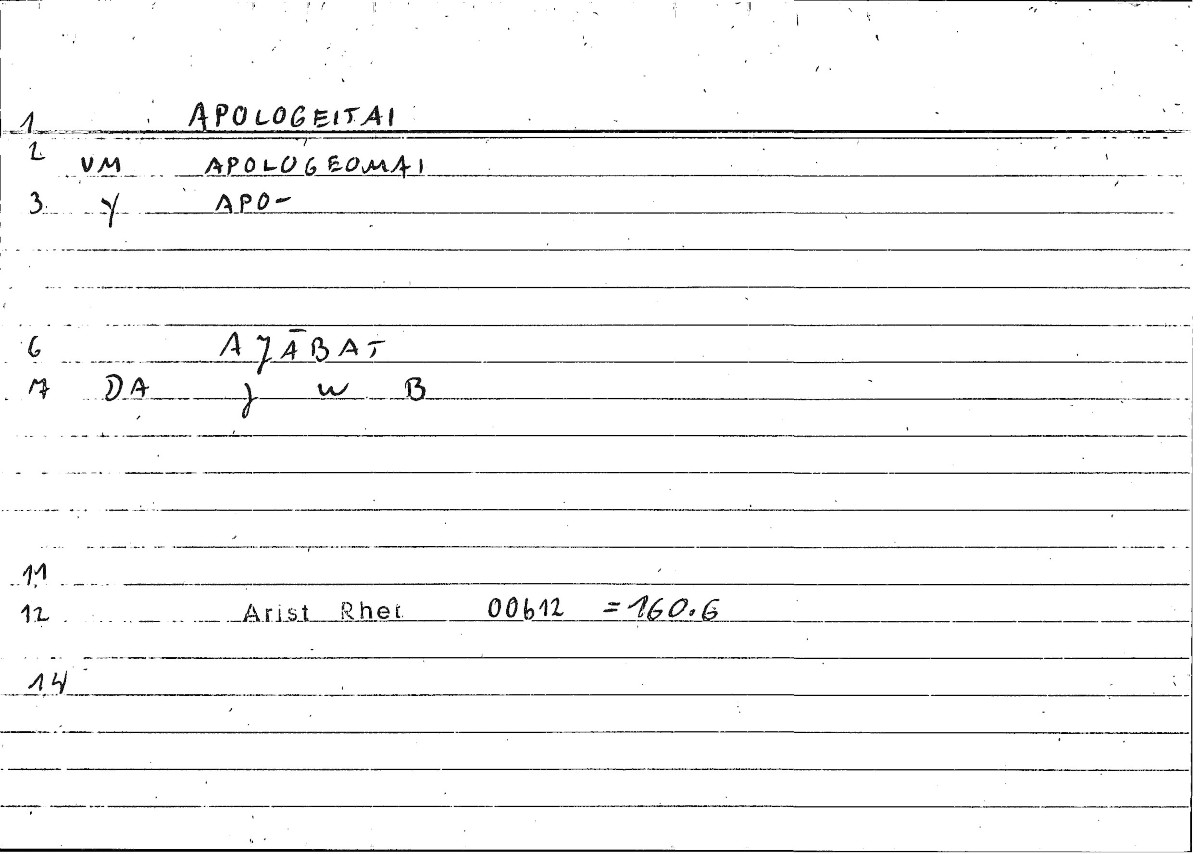 1 APOLOGEITAI
2 VM APOLOGEOMAI
3 Y APO-
6 AJĀBAT
7 DA J W B
11
12 Arist Rhet 00612 =160.6
14